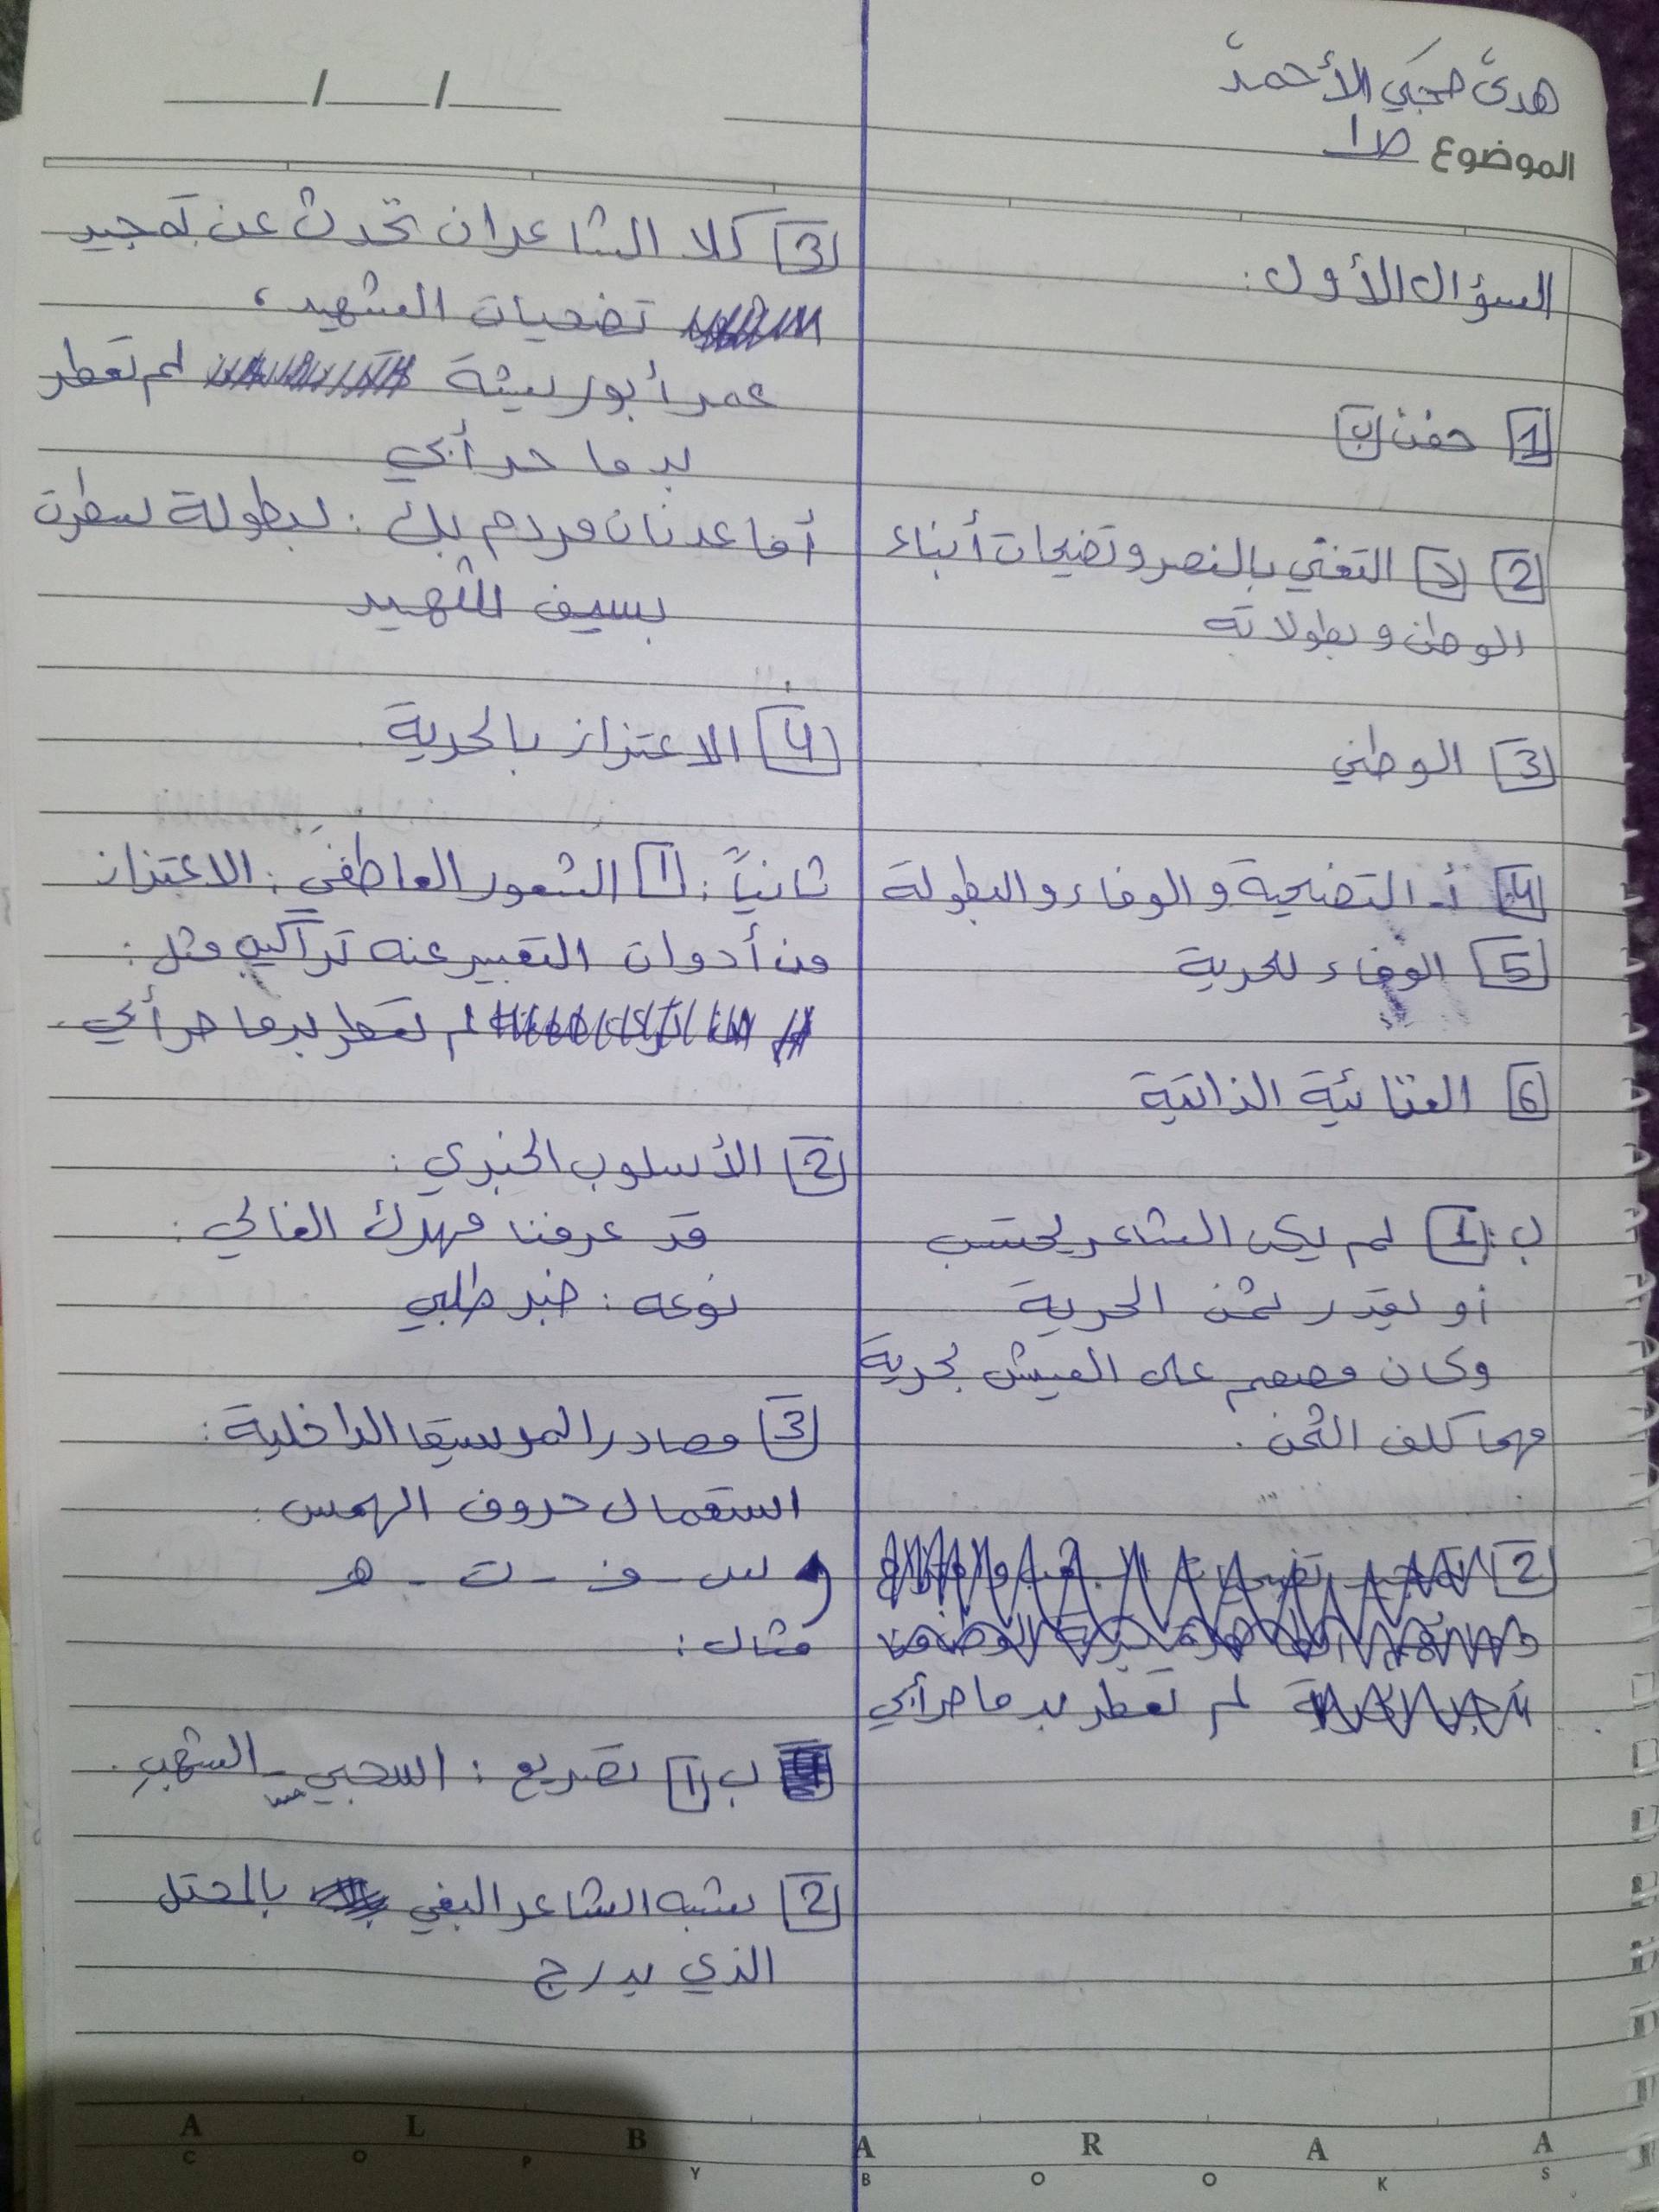 هدى حجي الأحمد
الموضوع ص1
/ /
السؤال الأول:
1 حفن ب
2 د التغني بالنصر وتضحيات أبناء
الوطن وبطولاته
3 الوطني
4 أ- التضحية والوفاء والبطولة
5 الوفاء للحرية
6 الغنائية الذاتية
ب: 1 لم يكن الشاعر يحتسب
أو يقدر ثمن الحرية
وكان مصمم على العيش بحرية
مهما كلف الثمن.
2
لم تعطر بدما حر أبي
3 كلا الشاعران تحدث عن تمجيد
تضحيات الشهيد،
عمر أبو ريشة لم تعطر
بدما حر أبي
أما عدنان مردم بك: لبطولة سطرت
بسيف الشهيد
4 الاعتزاز بالحرية.
ثانياً: 1 الشعور العاطفي: الاعتزاز
من أدوات التعبير عنه تراكيب مثل:
لم تعطر بدما حر أبي.
2 الأسلوب الخبري:
قد عرفنا مهرك الغالي:
نوعه: خبر طلبي
3 مصادر الموسيقا الداخلية:
استعمال حروف الهمس:
س - ف - ت - هـ
مثال:
ب 1 تصريع: اسحبي - الشهب.
2 يشبه الشاعر البغي بالمحتل
الذي يدرج
A L B A R A A
C O P Y B O O K S